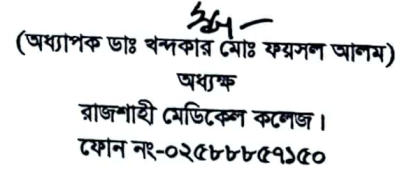 (অধ্যাপক ডাঃ খন্দকার মোঃ ফয়সল আলম)
অধ্যক্ষ
রাজশাহী মেডিকেল কলেজ।
ফোন নং-০২৫৮৮৮৫৭১৫০